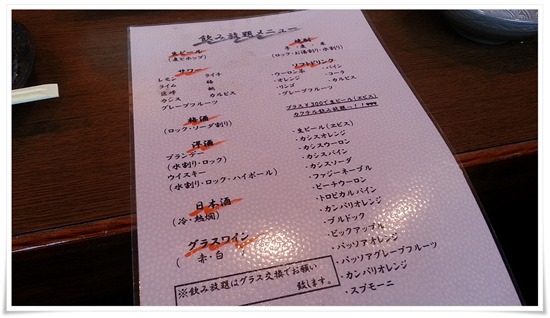 飲み放題メニュー
生ビール
(麦とホップ)
サワー
レモン ライチ
ライム 梅
巨峰 桃
カシス カルピス
グレープフルーツ
梅酒
(ロック・ソーダ割り)
洋酒
ブランデー
(水割り・ロック)
ウイスキー
(水割り・ロック・ハイボール)
日本酒
(冷・熱燗)
グラスワイン
( 赤・白 )
※飲み放題はグラス交換でお願い
致します。
焼酎
(ロック・お湯割り・水割り)
ソフトドリンク
・ウーロン茶 ・パイン
・オレンジ ・コーラ
・リンゴ ・カルピス
・グレープフルーツ
プラス¥300で生ビール(ヱビス)
カクテル飲み放題に!!♥♥♥
・生ビール(ヱビス)
・カシスオレンジ
・カシスウーロン
・カシスパイン
・カシスソーダ
・ファジーネーブル
・ピーチウーロン
・トロピカルパイン
・カンパリオレンジ
・ブルドック
・ピックアップル
・パッソアオレンジ
・パッソアグレープフルーツ
・カンパリオレンジ
・スプモーニ